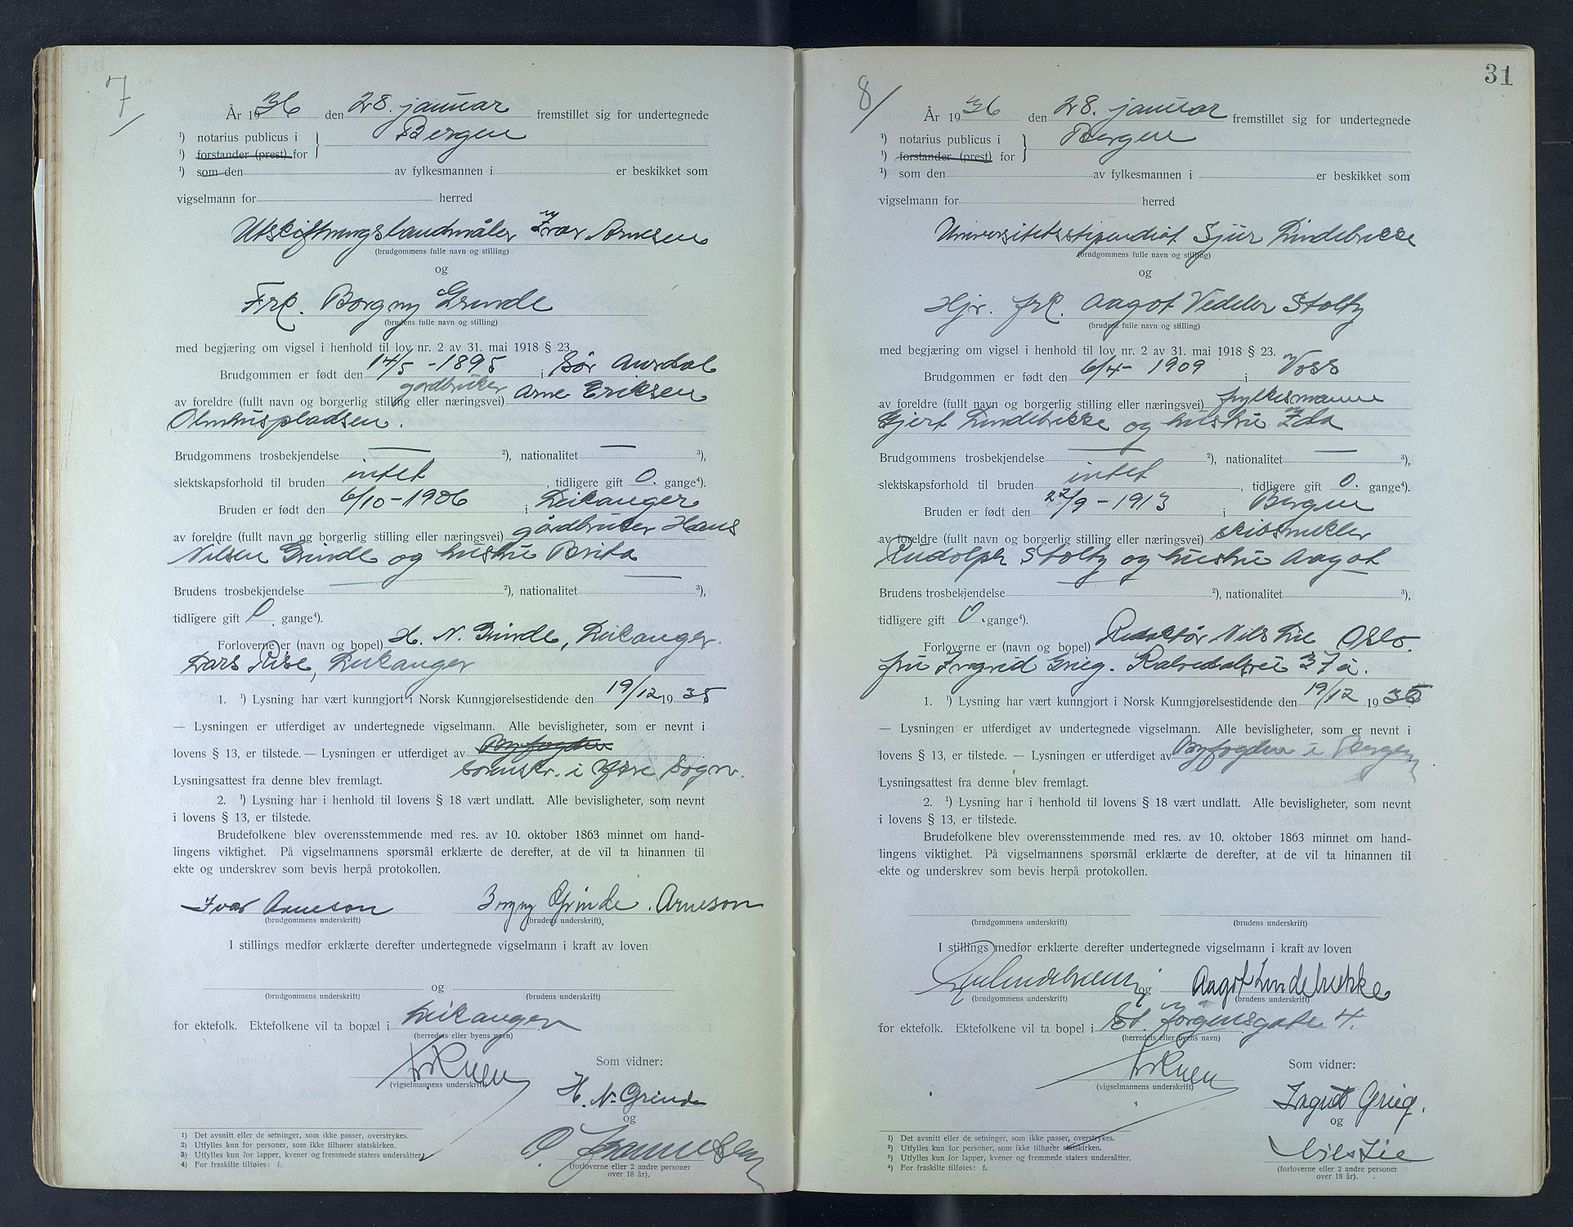 7/
År 1936 den 28. januar fremstillet sig for undertegnede
¹) notarius publicus i } Bergen
¹) forstander (prest) for
¹) som den av fylkesmannen i er beskikket som
vigselmann for herred
Utskiftningslandmåler Ivar Arnesen
(brudgommens fulle navn og stilling)
og
Frk. Borgny Grinde
(brudens fulle navn og stilling)
med begjæring om vigsel i henhold til lov nr. 2 av 31. mai 1918 § 23.
Brudgommen er født den 14/5 - 1895 i Sør Aurdal
av foreldre (fullt navn og borgerlig stilling eller næringsvei) gårdbruker Arne Eriksen
Olmhuspladsen.
Brudgommens trosbekjendelse — ²), nationalitet — ³),
slektskapsforhold til bruden intet, tidligere gift 0. gange⁴).
Bruden er født den 6/10 - 1906 i Leikanger
av foreldre (fullt navn og borgerlig stilling eller næringsvei) gårdbruker Hans
Nilsen Grinde og hustru Brita
Brudens trosbekjendelse — ²), nationalitet — ³),
tidligere gift 0. gange⁴).
Forloverne er (navn og bopel) H. N. Grinde, Leikanger.
Lars Rise, Leikanger
1. ¹) Lysning har vært kunngjort i Norsk Kunngjørelsestidende den 19/12 1935
— Lysningen er utferdiget av undertegnede vigselmann. Alle bevisligheter, som er nevnt i
lovens § 13, er tilstede. — Lysningen er utferdiget av Byfogden
sorenskr. i Ytre Sogn.
Lysningsattest fra denne blev fremlagt.
2. ¹) Lysning har i henhold til lovens § 18 vært undlatt. Alle bevisligheter, som nevnt
i lovens § 13, er tilstede.
Brudefolkene blev overensstemmende med res. av 10. oktober 1863 minnet om hand-
lingens viktighet. På vigselmannens spørsmål erklærte de derefter, at de vil ta hinannen til
ekte og underskrev som bevis herpå protokollen.
Ivar Arneson Borgny Grinde. Arneson
(brudgommens underskrift) (brudens underskrift).
I stillings medfør erklærte derefter undertegnede vigselmann i kraft av loven
og
(brudgommens underskrift) (brudens underskrift)
for ektefolk. Ektefolkene vil ta bopæl i Leikanger
(herredets eller byens navn)
(vigselmannens underskrift)
Som vidner:
H. N. Grinde
og
(forloverne eller 2 andre personer
over 18 år).
1) Det avsnitt eller de setninger, som ikke passer, overstrykes.
2) Utfylles kun for personer, som ikke tilhører statskirken.
3) Utfylles kun for lapper, kvener og fremmede staters undersåtter.
4) For fraskilte tilføies: f.
31
8/
År 1936 den 28. januar fremstillet sig for undertegnede
¹) notarius publicus i } Bergen
¹) forstander (prest) for
¹) som den av fylkesmannen i er beskikket som
vigselmann for herred
Universitetsstipendiat Sjur Lindebrekke
(brudgommens fulle navn og stilling)
og
Hjr. frk. Aagot Vedeler Stoltz
(brudens fulle navn og stilling)
med begjæring om vigsel i henhold til lov nr. 2 av 31. mai 1918 § 23.
Brudgommen er født den 6/4 - 1909 i Voss
av foreldre (fullt navn og borgerlig stilling eller næringsvei) fylkesmann
Gjert Lindebrekke og hustru Ida
Brudgommens trosbekjendelse ²), nationalitet — ³),
slektskapsforhold til bruden intet, tidligere gift 0. gange⁴).
Bruden er født den 22/9 - 1913 i Bergen
av foreldre (fullt navn og borgerlig stilling eller næringsvei) skibsmekler
Rudolph Stoltz og hustru Aagot
Brudens trosbekjendelse ²), nationalitet — ³),
tidligere gift 0. gange⁴).
Forloverne er (navn og bopel) Redaktør Nils Lie Oslo.
fru Ingrid Grieg. Kalvedalsvei 37a.
1. ¹) Lysning har vært kunngjort i Norsk Kunngjørelsestidende den 19/12 1935
— Lysningen er utferdiget av undertegnede vigselmann. Alle bevisligheter, som er nevnt i
lovens § 13, er tilstede. — Lysningen er utferdiget av Byfogden i Bergen
Lysningsattest fra denne blev fremlagt.
2. ¹) Lysning har i henhold til lovens § 18 vært undlatt. Alle bevisligheter, som nevnt
i lovens § 13, er tilstede.
Brudefolkene blev overensstemmende med res. av 10. oktober 1863 minnet om hand-
lingens viktighet. På vigselmannens spørsmål erklærte de derefter, at de vil ta hinannen til
ekte og underskrev som bevis herpå protokollen.
(brudgommens underskrift) (brudens underskrift)
I stillings medfør erklærte derefter undertegnede vigselmann i kraft av loven
og Aagot Lindebrekke
(brudgommens underskrift) (brudens underskrift)
for ektefolk. Ektefolkene vil ta bopel i St. Jørgensgate 4.
(herredets eller byens navn)
(vigselmannens underskrift)
Som vidner:
Ingrid Grieg.
og
Nils Lie
(forloverne eller 2 andre personer
over 18 år).
1) Det avsnitt eller de setninger, som ikke passer, overstrykes.
2) Utfylles kun for personer, som ikke tilhører statskirken.
3) Utfylles kun for lapper, kvener og fremmede staters undersåtter.
4) For fraskilte tilføies: f.